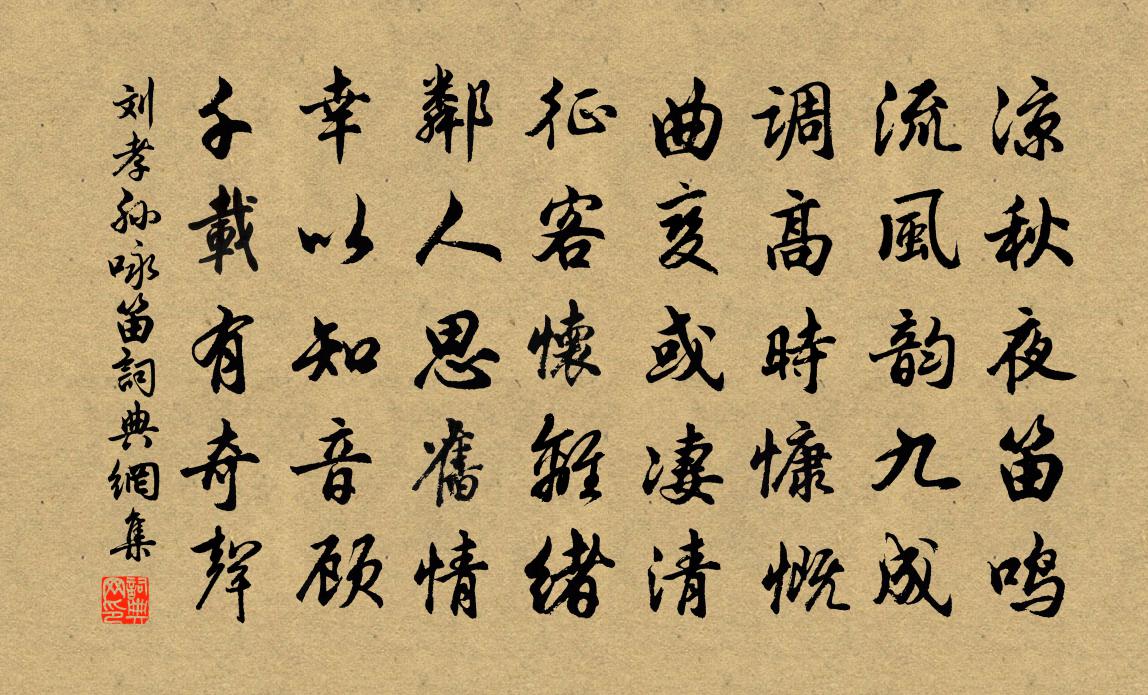 涼秋夜笛鸣
流風韵九成
调高時慷慨
曲变或凄清
征客懷離緒
鄰人思舊情
幸以知音顾
千載有奇聲
刘孝孙咏笛詞典網集